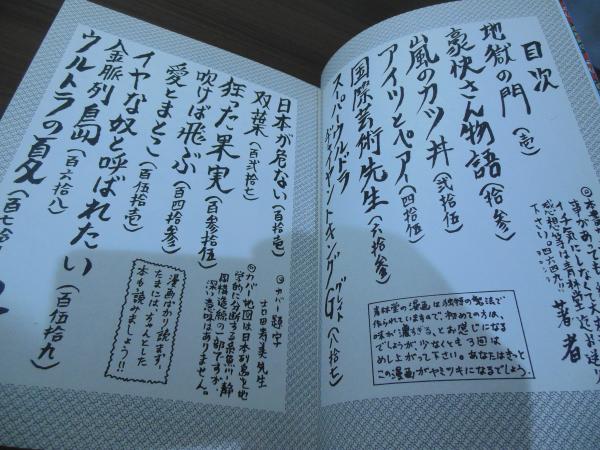 目次
地獄の門(壱)
豪快さん物語(拾参)
嵐のカツ丼(弐拾伍)
アイツとペア(四拾伍)
国際芸術先生(六拾参)
スーパーウルトラ
ジャイヤントキンググレートG(八拾七)
著者
青林堂の漫画は独特の製法で
作られていますので、初めての方は、
味が濃すぎる、とお感じになる
でしょうが、少なくとも3回は
めし上がって下さい。あなたはきっと
この漫画がヤミツキになるでしょう。
日本が危ない(百拾壱)
双葉(百弐拾七)
狂った果実(百参拾伍)
吹けば飛ぶ(百四拾参)
愛とまこと
イヤな奴と呼ばれたい(百伍拾九)
金脈列島(百六拾八)
ウルトラの夏
◎カバー題字
吉田寿美先生
◎カバー地図は日本列島を地
学的に分断する糸魚川-静
岡構造線の一部ですが、
深い意味はありません。
漫画ばかり読まず、
たまには、ちゃんとした
本も読みましょう!!